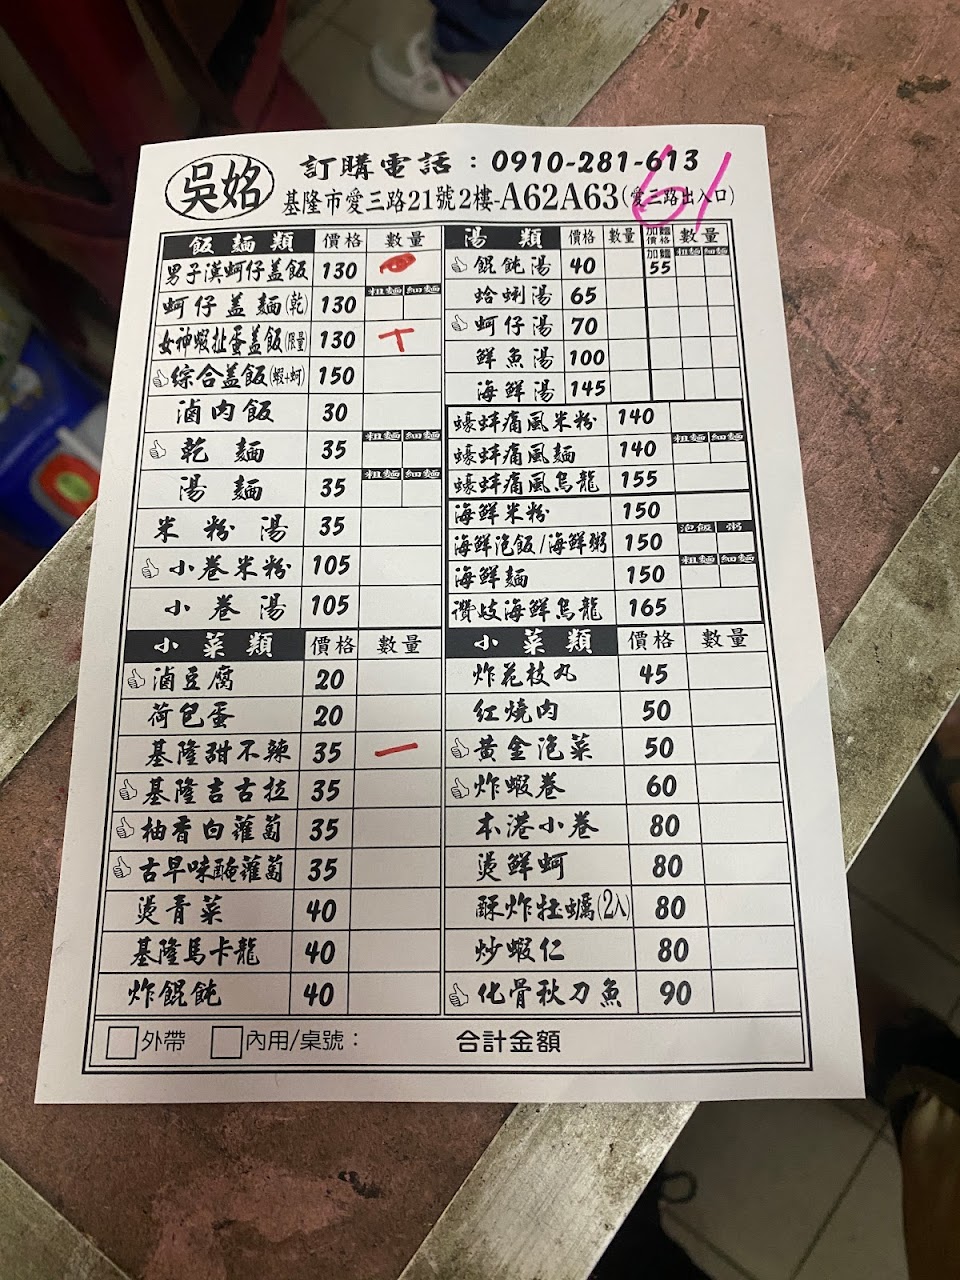 吳姳
訂購電話：0910-281-613
基隆市愛三路21號2樓-A62A63(愛三路出入口)
61
飯麵類 價格 數量
男子漢蚵仔盖飯 130
蚵仔盖麵(乾) 130 粗麵 細麵
女神蝦扯蛋盖飯(限量) 130 丅
綜合盖飯(蝦+蚵) 150
滷肉飯 30
乾麵 35 粗麵 細麵
湯麵 35 粗麵 細麵
米粉湯 35
小卷米粉 105
小卷湯 105
湯類 價格 數量 加麵價格 數量
餛飩湯 40 加麵 55 粗麵 細麵
蛤蜊湯 65
蚵仔湯 70
鮮魚湯 100
海鮮湯 145
蠔蚌痛風米粉 140
蠔蚌痛風麵 140 粗麵 細麵
蠔蚌痛風烏龍 155
海鮮米粉 150
海鮮泡飯/海鮮粥 150 泡飯 粥
海鮮麵 150 粗麵 細麵
讚岐海鮮烏龍 165
小菜類 價格 數量
滷豆腐 20
荷包蛋 20
基隆甜不辣 35 一
基隆吉古拉 35
柚香白蘿蔔 35
古早味醃蘿蔔 35
燙青菜 40
基隆馬卡龍 40
炸餛飩 40
小菜類 價格 數量
炸花枝丸 45
紅燒肉 50
黃金泡菜 50
炸蝦卷 60
本港小卷 80
燙鮮蚵 80
酥炸牡蠣(2入) 80
炒蝦仁 80
化骨秋刀魚 90
外帶 內用/桌號： 合計金額